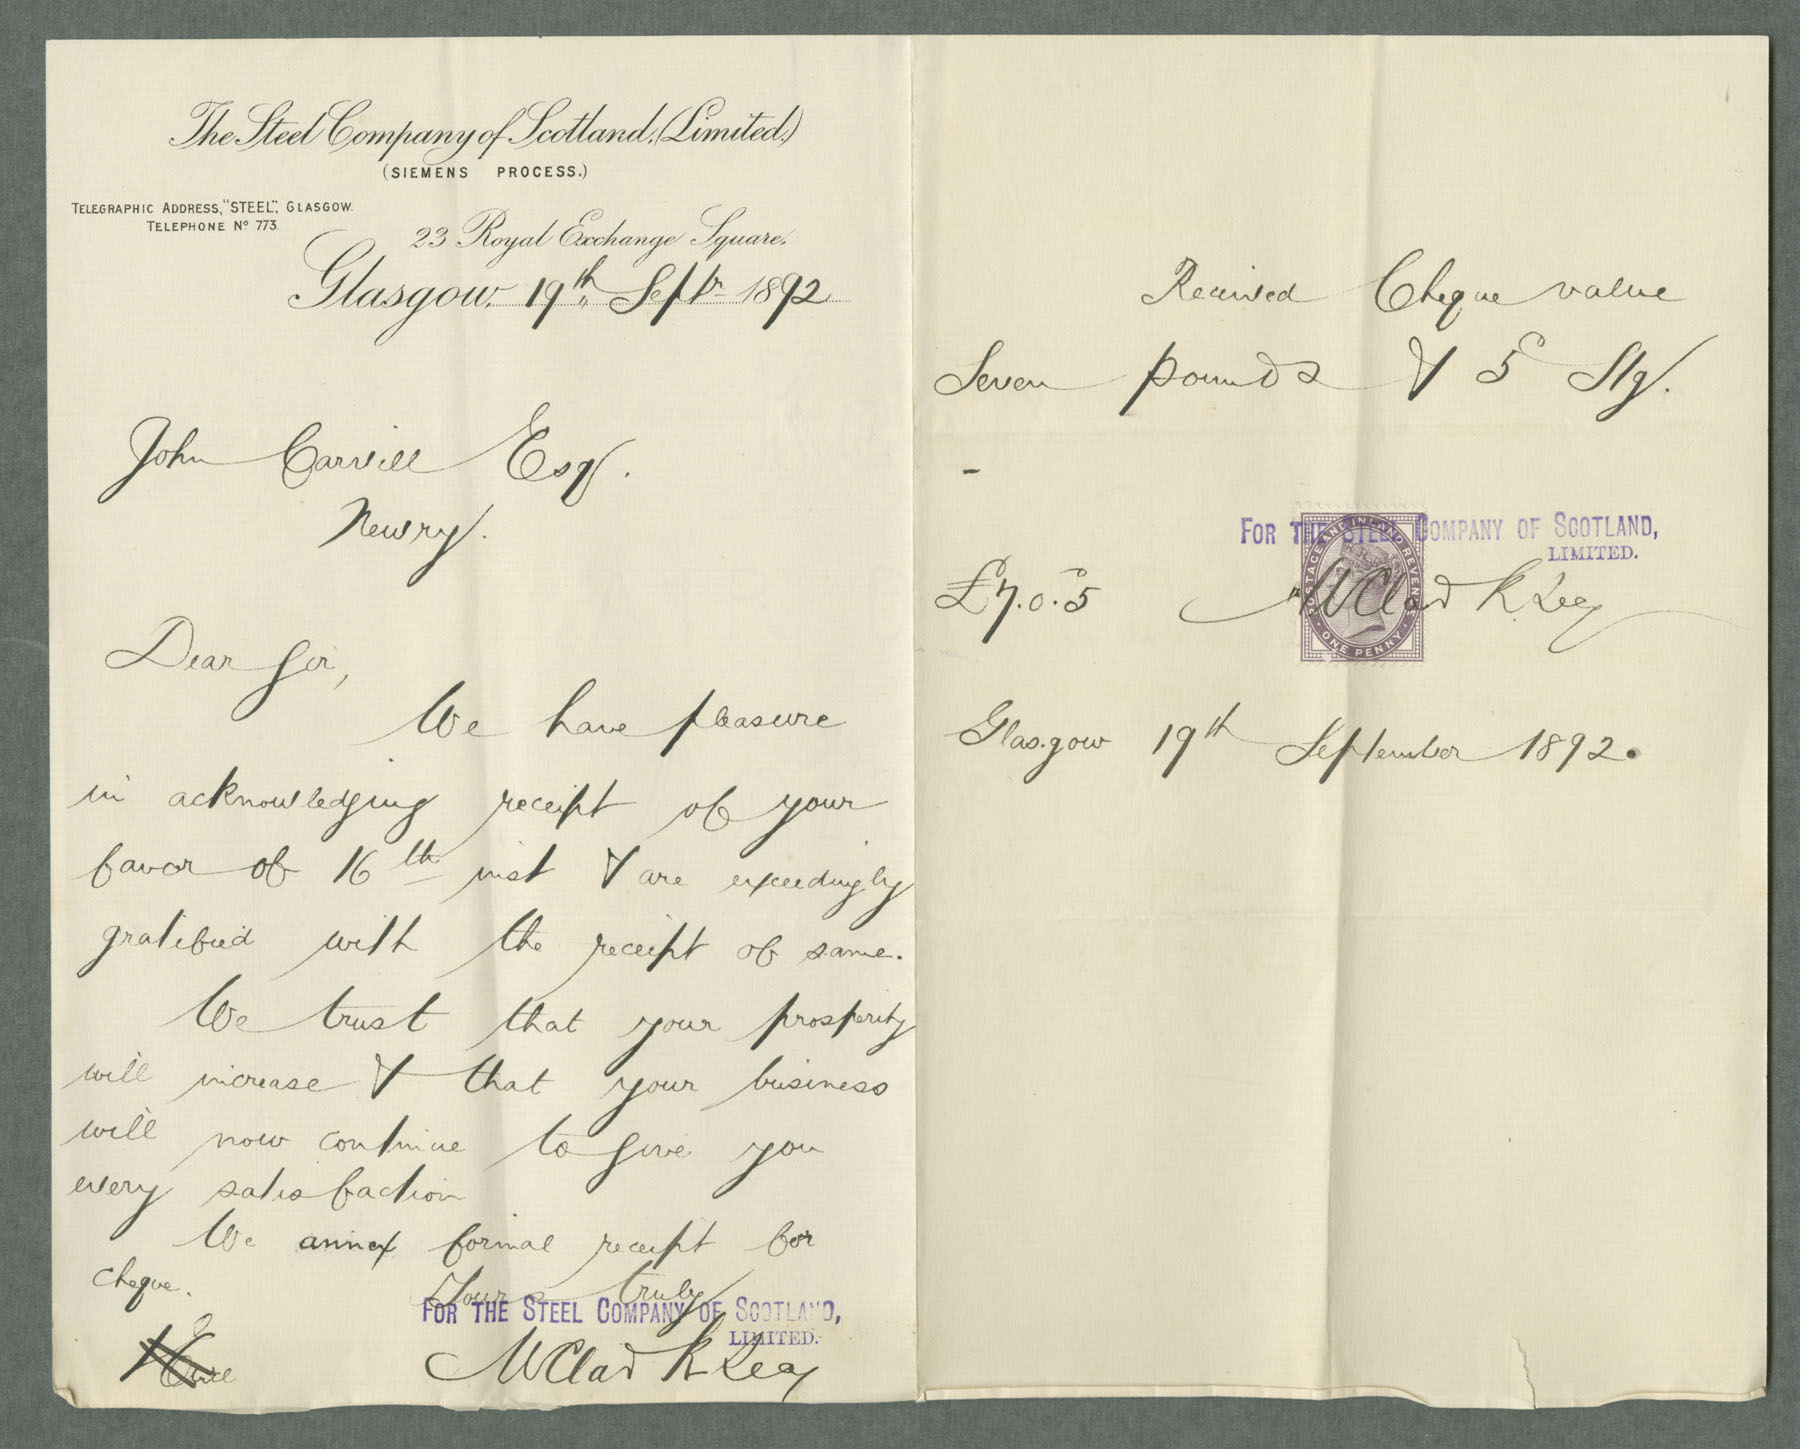 The Steel Company of Scotland, (Limited.)
(SIEMENS PROCESS.)
TELEGRAPHIC ADDRESS, "STEEL", GLASGOW.
TELEPHONE Nº 773.
23 Royal Exchange Square.
Glasgow, 19th Septr 1892
John Carvill Esq.
Newry.
Dear Sir,
We have pleasure
in acknowledging receipt of your
favor of 16th inst & are exceedingly
gratified with the receipt of same.
We trust that your prosperity
will increase & that your business
will now continue to give you
every satisfaction
We annex formal receipt for
cheque.
Yours truly
FOR THE STEEL COMPANY OF SCOTLAND,
LIMITED.
1
Received Cheque value
Seven pounds & 5 Stg.
-
FOR THE STEEL COMPANY OF SCOTLAND,
LIMITED.
POSTAGE AND INLAND REVENUE
ONE PENNY
£7.0.5
Glasgow 19th September 1892.